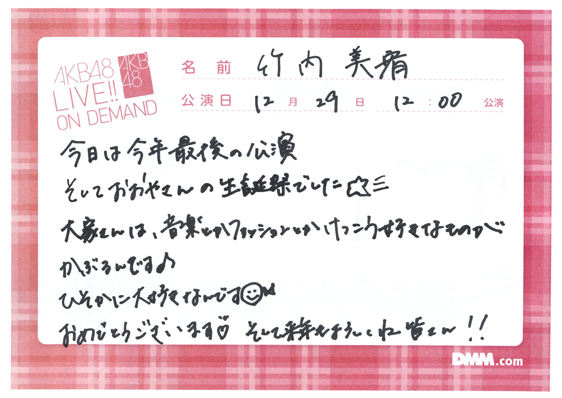 AKB48
LIVE!!
ON DEMAND
AKB
48
名前 竹内美宥
公演日 12月29日 12:00公演
今日は今年最後の公演
そしておおやさんの生誕祭でした☆彡
大家さんは、音楽とかファッションとかけっこう好きなものが
かぶるんです♪
ひそかに大好きなんです
おめでとうございます♡ そして来年もよろしくね 皆さん!!
DMM.com